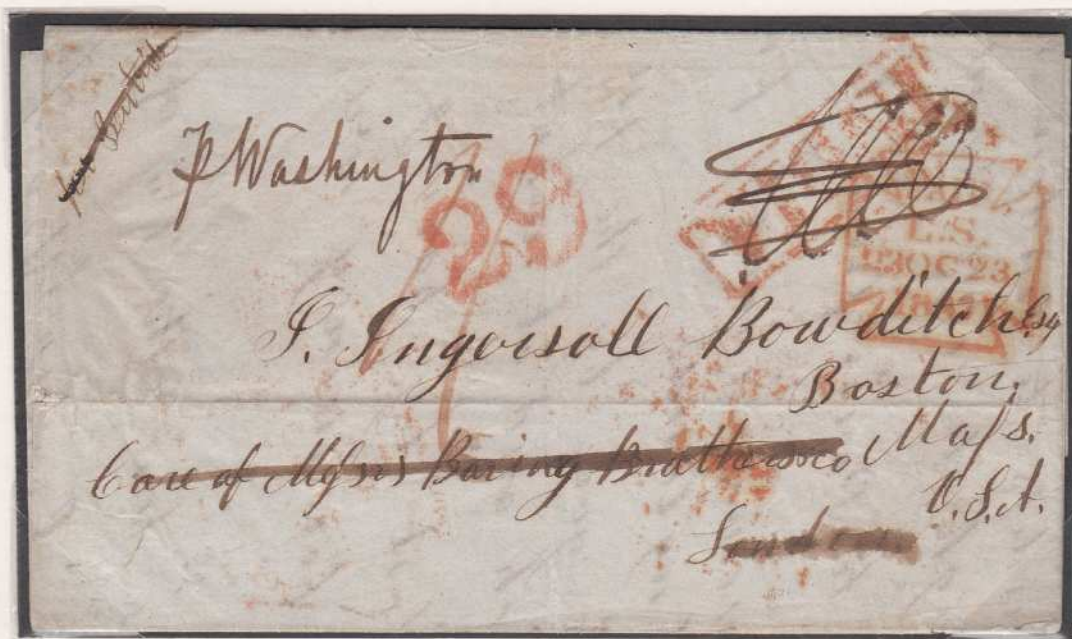 P Washington
29
L.S.
23 OC 23
J. Ingersoll Bowditch Esq
Boston,
Care of Messrs Baring Brothers & Co Mass.
London U.S.A.